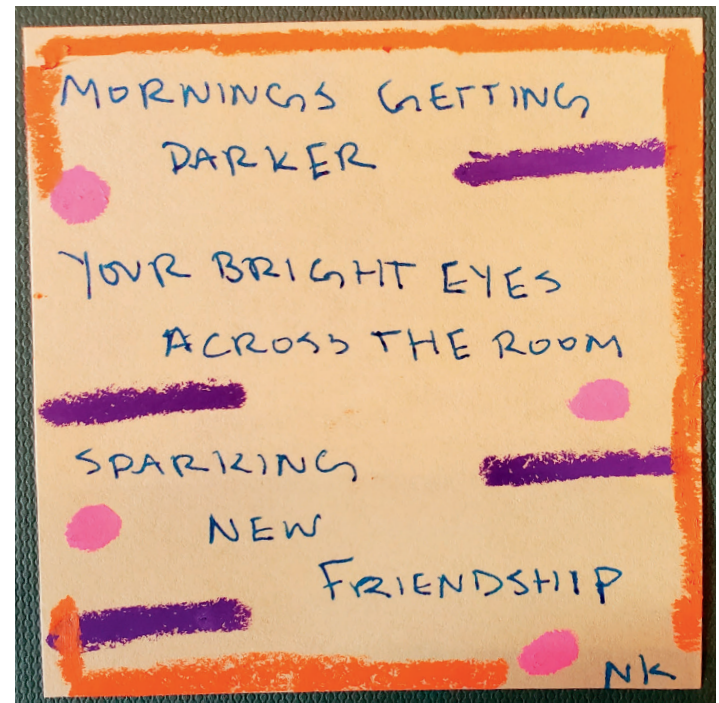 MORNINGS GETTING
DARKER
YOUR BRIGHT EYES
ACROSS THE ROOM
SPARKING
NEW
FRIENDSHIP
NK